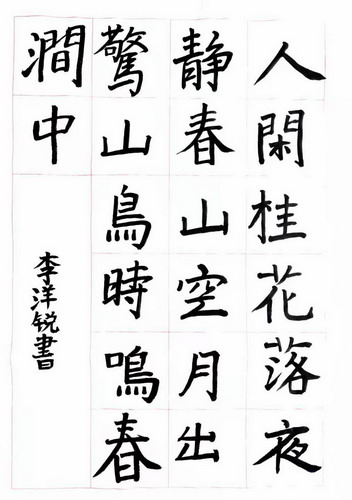 人閑桂花落夜
靜春山空月出
驚山鳥時鳴春
澗中
李洋锐書